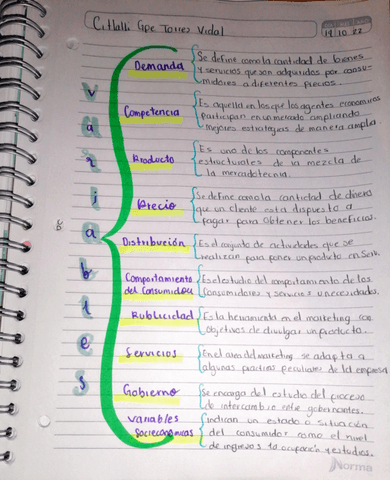 Citlalli Gpe Torres Vidal
19 10 22
Variables
Demanda
Se define como la cantidad de bienes
y servicios que son adquiridos por consu-
midores a diferentes precios.
Competencia
Es aquella en los que los agentes economicos
participan en un mercado ampliando
mejores estrategias de manera amplia
Producto
Es uno de los componentes
estructurales de la mezcla de
la mercadotecnia.
Precio
Se define como la cantidad de dinero
que un cliente esta dispuesto a
pagar para obtener los beneficios.
Distribución
Es el conjunto de actividades que se
realizan para poner un producto en
Comportamiento
del Consumidor
Es el estudio del comportamiento de los
consumidores y servicios
Publicidad
Es la herramienta en el marketing con
objetivos de divulgar un producto.
Servicios
En el area del marketing se adapta a
algunas practicas peculiares de la empresa
Gobierno
Se encarga del estudio del proceso
de intercambio entre gobernantes.
variables
Socieconómicas
indican un estado o situación
del consumidor como el nivel
de ingresos la ocupación y estudios.
Norma